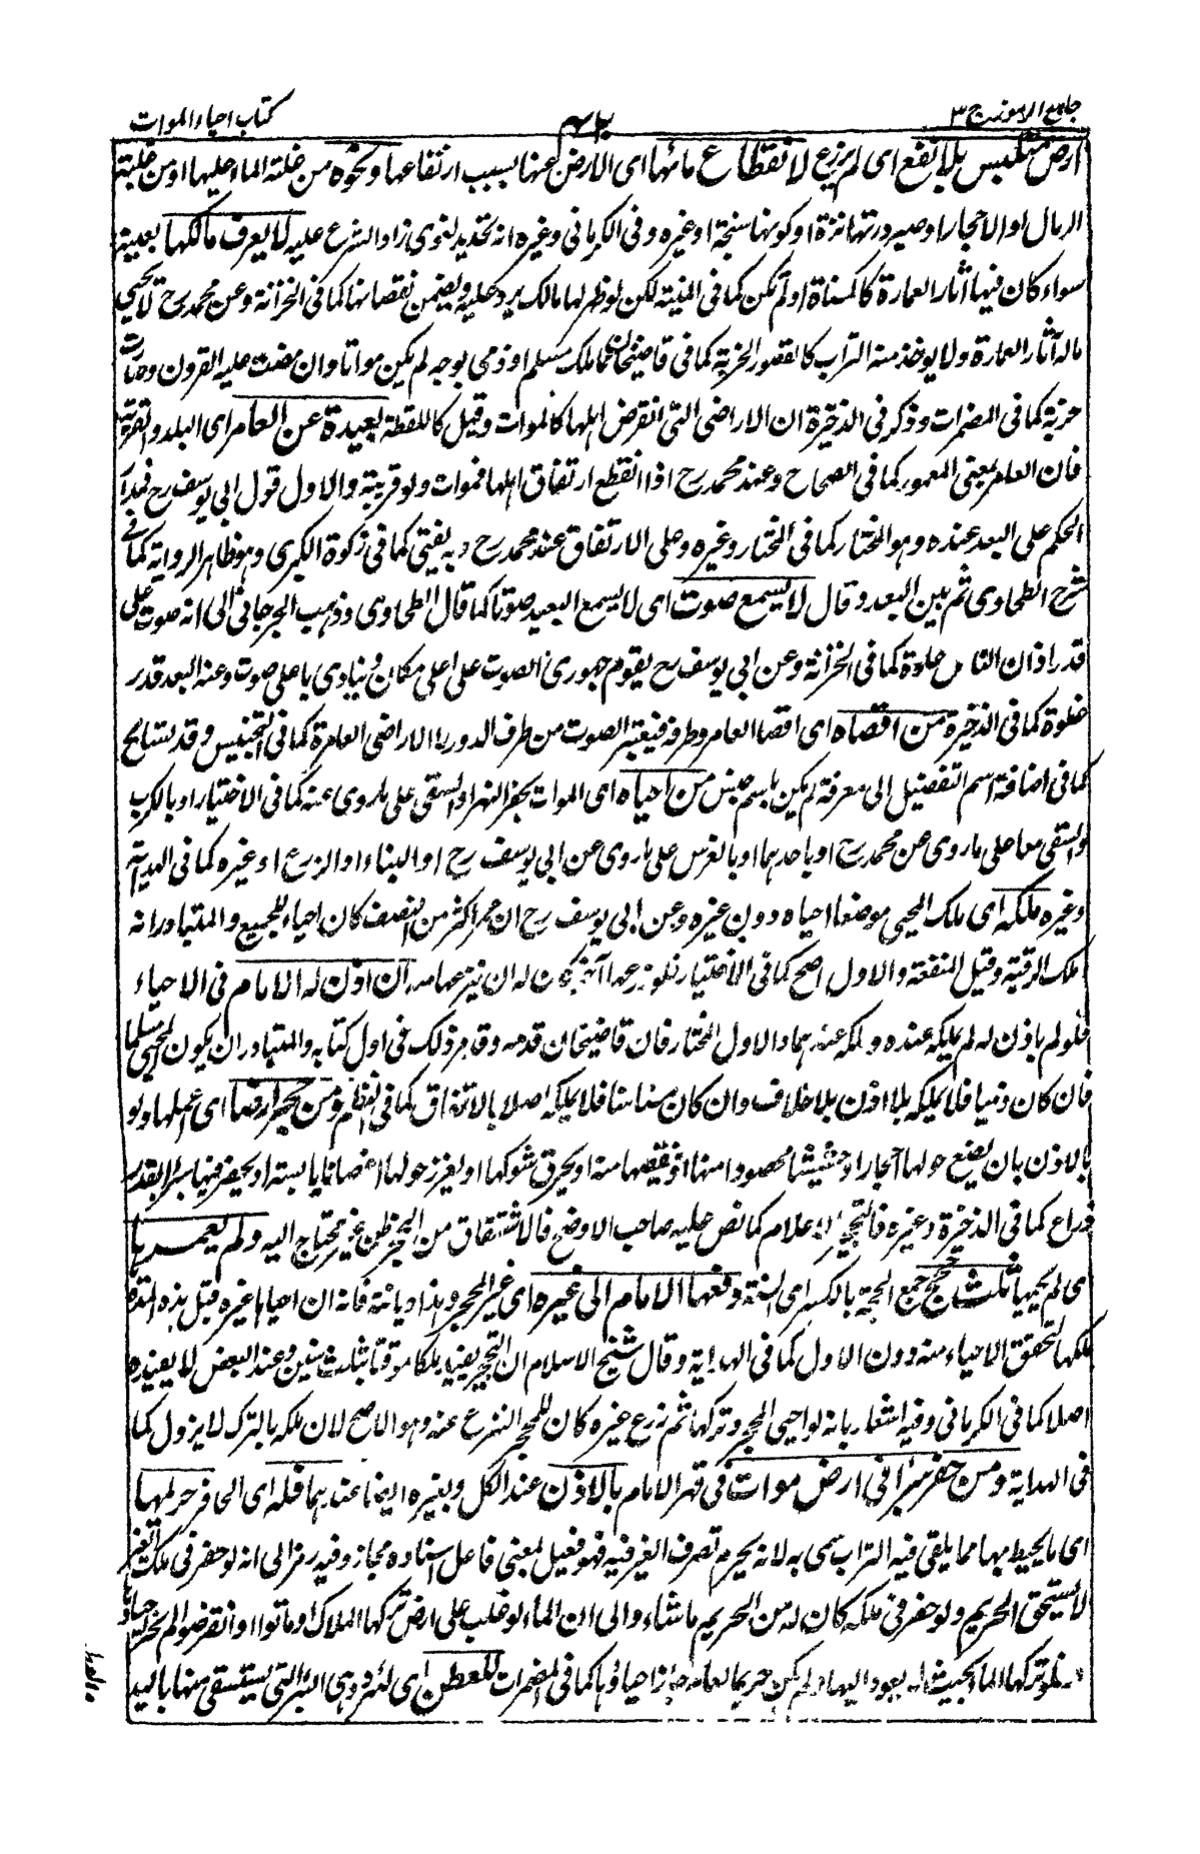 جامع الرموز ج ٣
كتاب احياء الموات
ارض متلبس بلا نفع اى لم يزرع لانقطاع مائها اى الارض عنها بسبب ارتفاعها ونحوه من غلبة الماء عليها او من غلبة
الرمال او الاحجار او صيرورتها نزة او كونها سبخة او غيره وفى الكرمانى وغيره انه تحديد لغوى زاد الشرع عليه لا يعرف مالكها بعينه
سواء كان فيها آثار العمارة كالمسناة او لم تكن كما فى المنية لكن لو ظهر لها مالك يرد عليه ويضمن نقصانها كما فى الخزانة وعن محمد رح لا يحيى
ماله آثار العمارة ولا يوخذ منه التراب كالقصور الخربة كما فى قاضيخان فما ملك مسلم او ذمى بوجه لم يكن مواتا وان مضت عليه القرون وصارت
خربة كما فى المضمرات وذكر فى الذخيرة ان الاراضى التى انقرض اهلها كالموات وقيل كاللقطة بعيدة عن العامر اى البلد والقرية
فان العامر بمعنى المعمور كما فى الصحاح وعند محمد رح اذا انقطع ارتفاق اهلها فموات ولو قريبة والاول قول ابى يوسف رح فمدار
الحكم على البعد عنده وهو المختار كما فى المختار وغيره وعلى الارتفاق عند محمد رح وبه يفتى كما فى زكوة الكبرى وهو ظاهر الرواية كما فى
شرح الطحاوى ثم بين البعد وقال لا يسمع صوت اى لا يسمع البعيد صوتا كما قال الطحاوى وذهب الجرجانى الى انه صوت على
قدر اذان الناس كما فى الخزانة وعن ابى يوسف رح يقوم جهورى الصوت على اعلى مكان وينادى باعلى صوت وعنه البعد قدر
غلوة كما فى الذخيرة من اقصاه اى اقصا العامر وطرفه فيعتبر الصوت من طرف الدور لا الاراضى العامرة كما فى التجنيس وقد تسامح
كما فى اضافة اسم التفضيل الى معرفة لم يكن باسم جنس من احياه اى الموات بحفر النهر او السقى على ما روى عنه كما فى الاختيار او بالكرب
والسقى معا على ما روى عن محمد رح او باحدهما او بالغرس على ما روى عن ابى يوسف رح او البناء او الزرع او غيره كما فى الهداية
وغيره ملكه اى ملك المحيى موضعا احياه دون غيره وعن ابى يوسف رح ان عمر اكثر من النصف كان احياء للجميع والمتبادر انه
ملك الرقبة وقيل المنفعة والاول اصح كما فى الاختيار فلو زرعها آخر كان له ان ينزعها منه ان اذن له الامام فى الاحياء
فلو لم ياذن له لم يملكه عنده وملكه عندهما والاول المختار فان قاضيخان قدمه وقد مر ذلك فى اول كتابه والمتبادر ان يكون المحيى مسلما
فان كان ذميا فلا يملكه بلا اذن بلا خلاف وان كان مستامنا فلا يملكه اصلا بالاتفاق كما فى النظم ومن حجر ارضا اى اعملها ولو
بالاذن بان يضع حولها احجارا او حشيشا محصودا منها او نقصها منه او يحرق شوكها او يغرز حولها اغصانا يابسة او يحفر فيها بئرا بقدر
ذراع كما فى الذخيرة وغيره فالتحجير الاعلام كما نص عليه صاحب الاوضح فالاشتقاق من الحجر ظن غير محتاج اليه ولم يعمرها
اى لم يحيها ثلث حجج جمع الحجة بالكسر اى السنة دفعها الامام الى غيره اى غير المحجر وهذا ديانة فانه ان احياها غيره قبل هذه المدة
ملكها لتحقق الاحياء منه دون الاول كما فى الهداية وقال شيخ الاسلام ان التحجير يفيد ملكا موقتا بثلث سنين وعند البعض لا يفيده
اصلا كما فى الكرمانى وفيه اشعار بانه لو احيى المحجر وتركها ثم زرع غيره كان للمحجر النزع عنه وهو الاصح لان ملكه بالترك لا يزول كما
فى الهداية ومن حفر بئرا فى ارض موات فى قهر الامام بالاذن عند الكل وبغيره ايضا عندهما فله اى الحافر حريمها
اى ما يحيط بها مما يلقى فيه التراب سمى به لانه يحرم تصرف الغير فيه فهو فعيل بمعنى فاعل اسناده مجاز وفيه رمز الى انه لو حفر فى ملك الغير
لا يستحق الحريم ولو حفر فى ملكه كان له من الحريم ما شاء والى ان الماء لو غلب على ارض تركها الملاك او ماتوا او انقرضوا لم يجز احياؤها
فلو تركها الماء بحيث لا يعود اليها ولم يكن حريما لعامر جاز احياؤها كما فى المضمرات للعطن اى لبئر وهى البئر التى يستسقى منها باليد